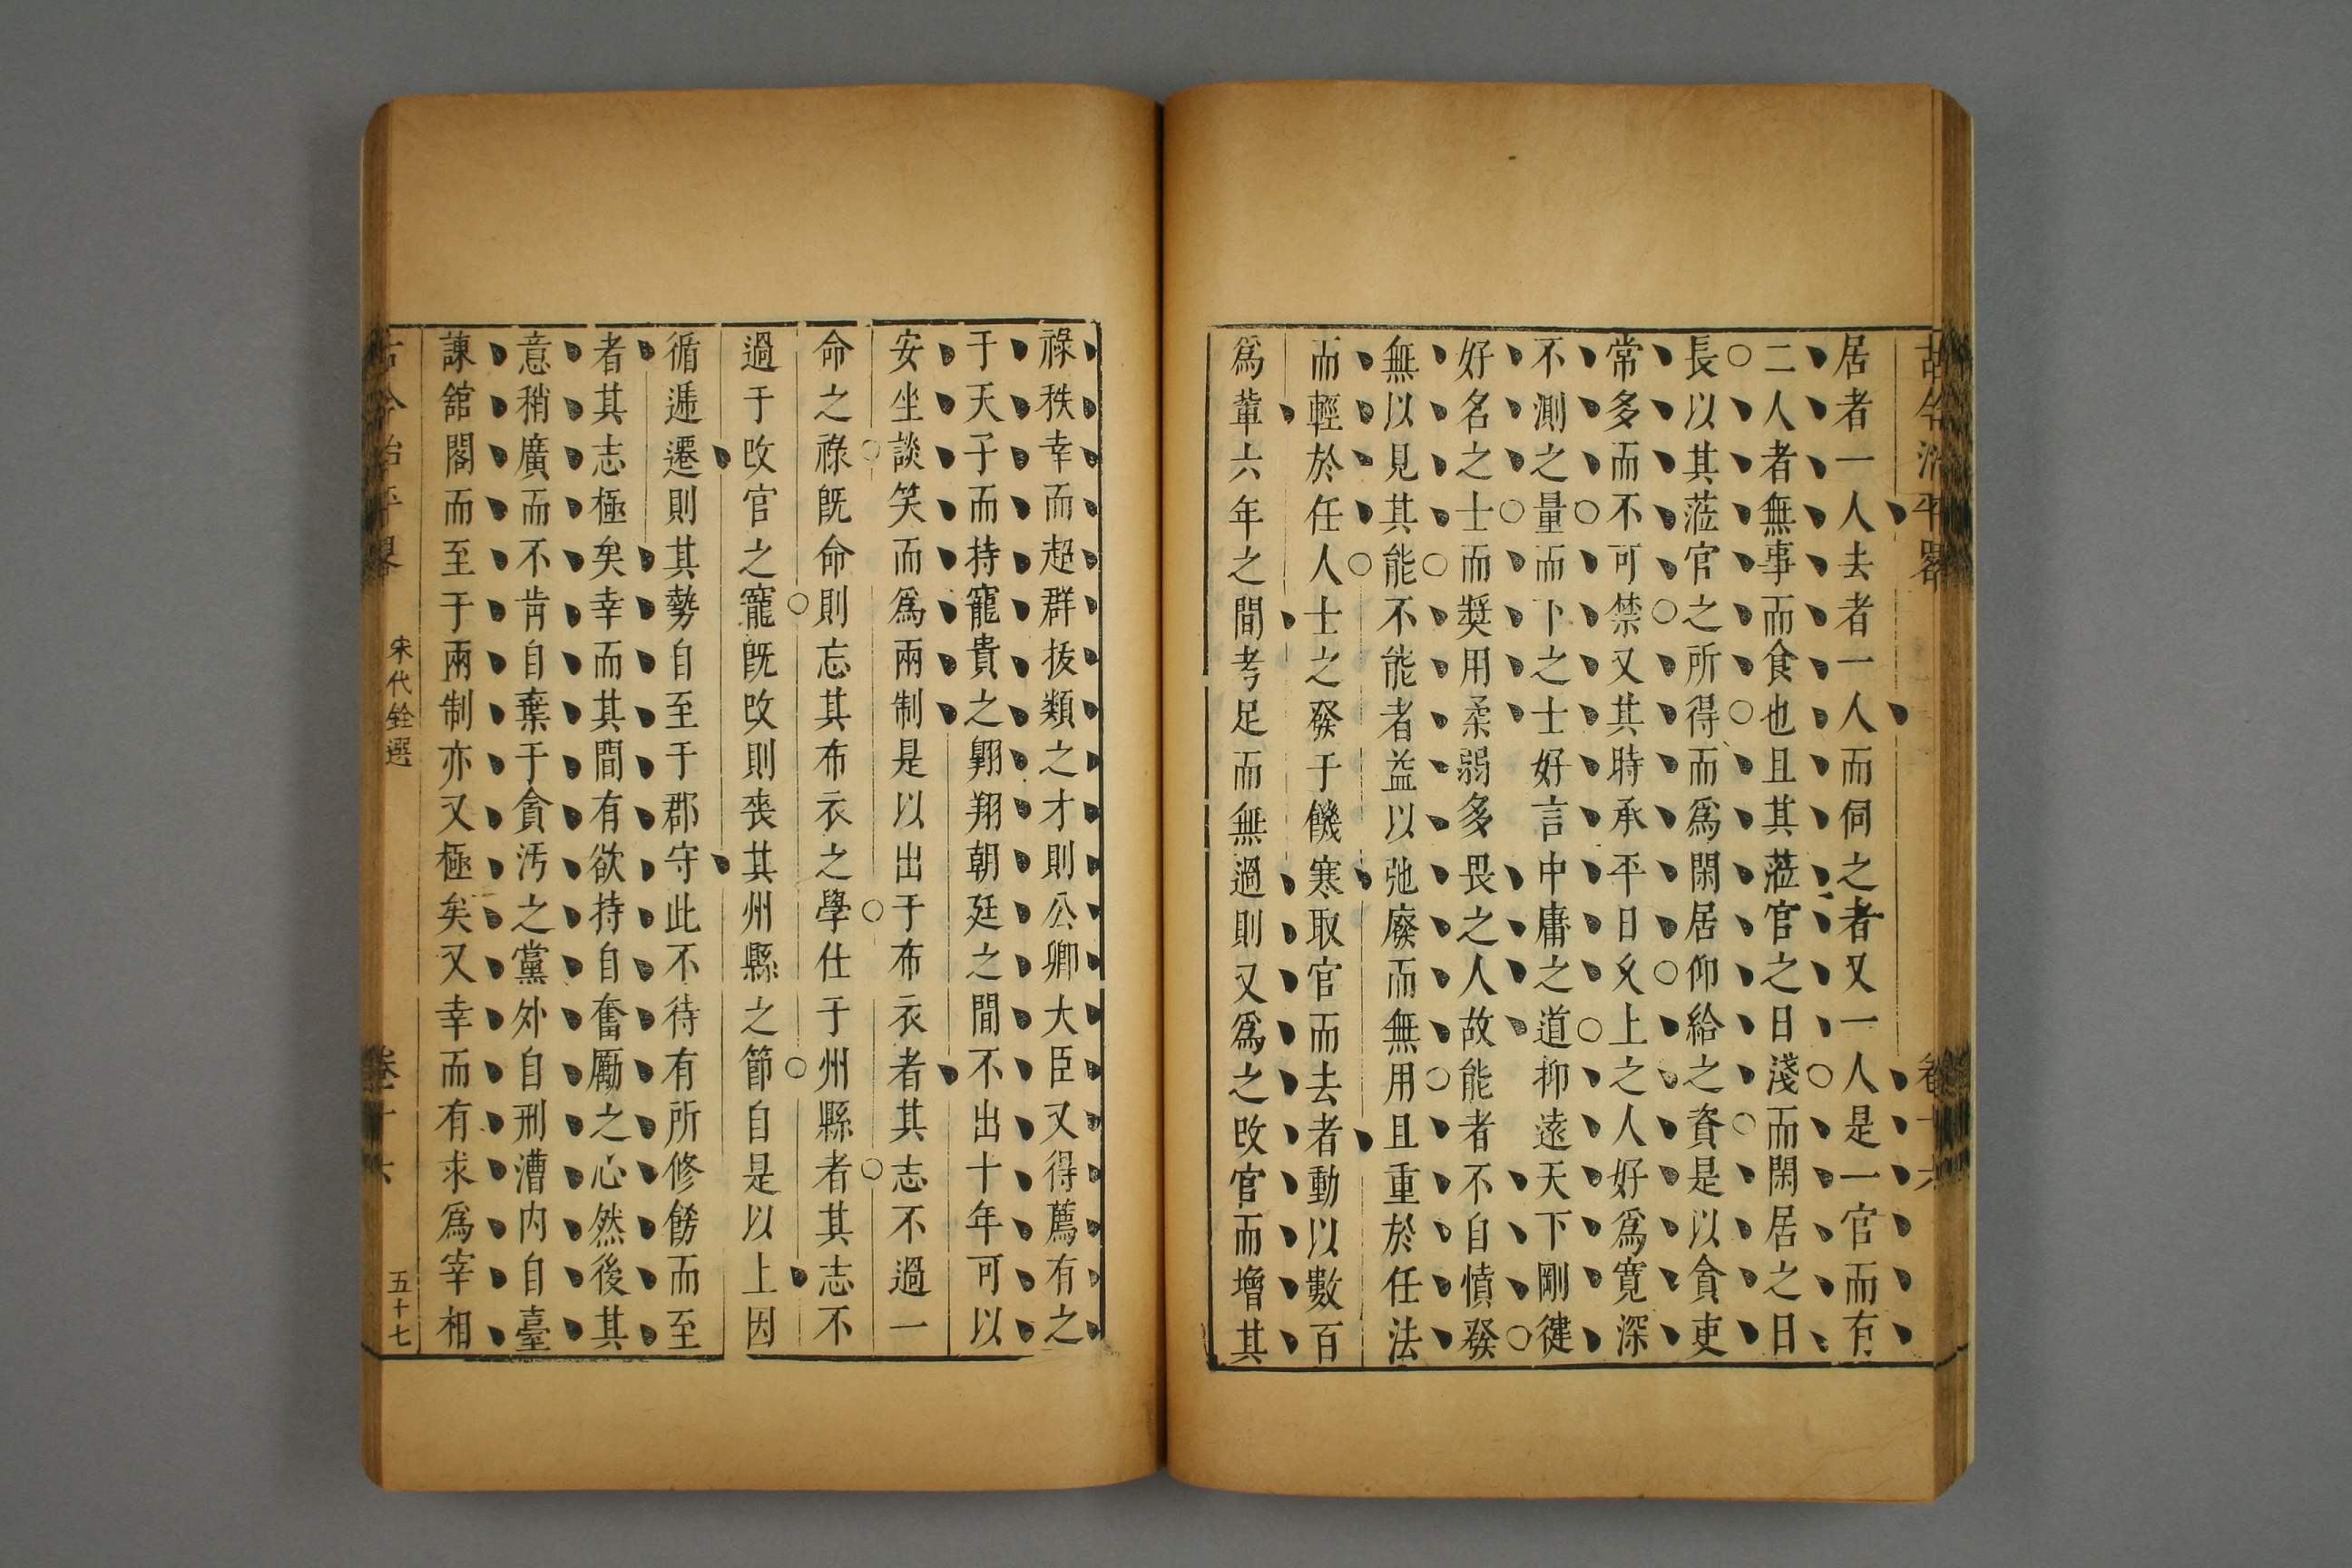 古今治平畧 卷十六
居者一人去者一人而伺之者又一人是一官而有
二人者無事而食也且其蒞官之日淺而閑居之日
長以其蒞官之所得而爲閑居仰給之資是以貪吏
常多而不可禁又其時承平日久上之人好爲寛深
不測之量而下之士好言中庸之道抑遠天下剛健
好名之士而奬用柔弱多畏之人故能者不自憤發
無以見其能不能者益以弛廢而無用且重於任法
而輕於任人士之發于饑寒取官而去者動以數百
爲軰六年之間考足而無過則又爲之改官而增其
祿秩幸而超群拔類之才則公卿大臣又得薦有之
于天子而持寵貴之翺翔朝廷之間不出十年可以
安坐談笑而爲兩制是以出于布衣者其志不過一
命之祿旣命則忘其布衣之學仕于州縣者其志不
過于改官之寵旣改則喪其州縣之節自是以上因
循遞遷則其勢自至于郡守此不待有所修餝而至
者其志極矣幸而其間有欲持自奮勵之心然後其
意稍廣而不肯自棄于貪汚之黨外自刑漕內自臺
諫舘閣而至于兩制亦又極矣又幸而有求爲宰相
古今治平畧 宋代銓選 卷十六 五十七